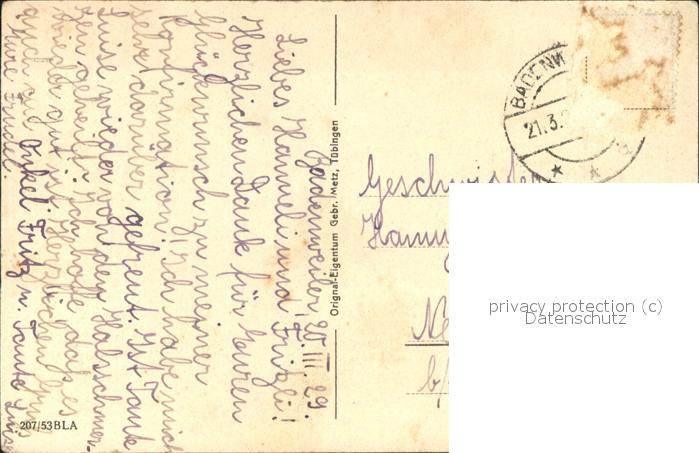 Badenweiler, 20. III. 29.
Liebes Hanneli und Fritzli!
Herzlichen Dank für Euren
Glückwunsch zu meiner
Konfirmation. Ich habe mich
sehr darüber gefreut. Ist Tante
Luise wieder von den Halsschmer-
zen geheilt? Ich hoffe, dass es
wieder gut ist. Herzlichen Gruss
auch an Onkel Fritz u. Tante Luise
Eure
Original-Eigentum Gebr. Metz, Tübingen
207/53BLA
BADENW
21.3.
Geschwister
Hanny
Ne
b/
privacy protection (c)
Datenschutz